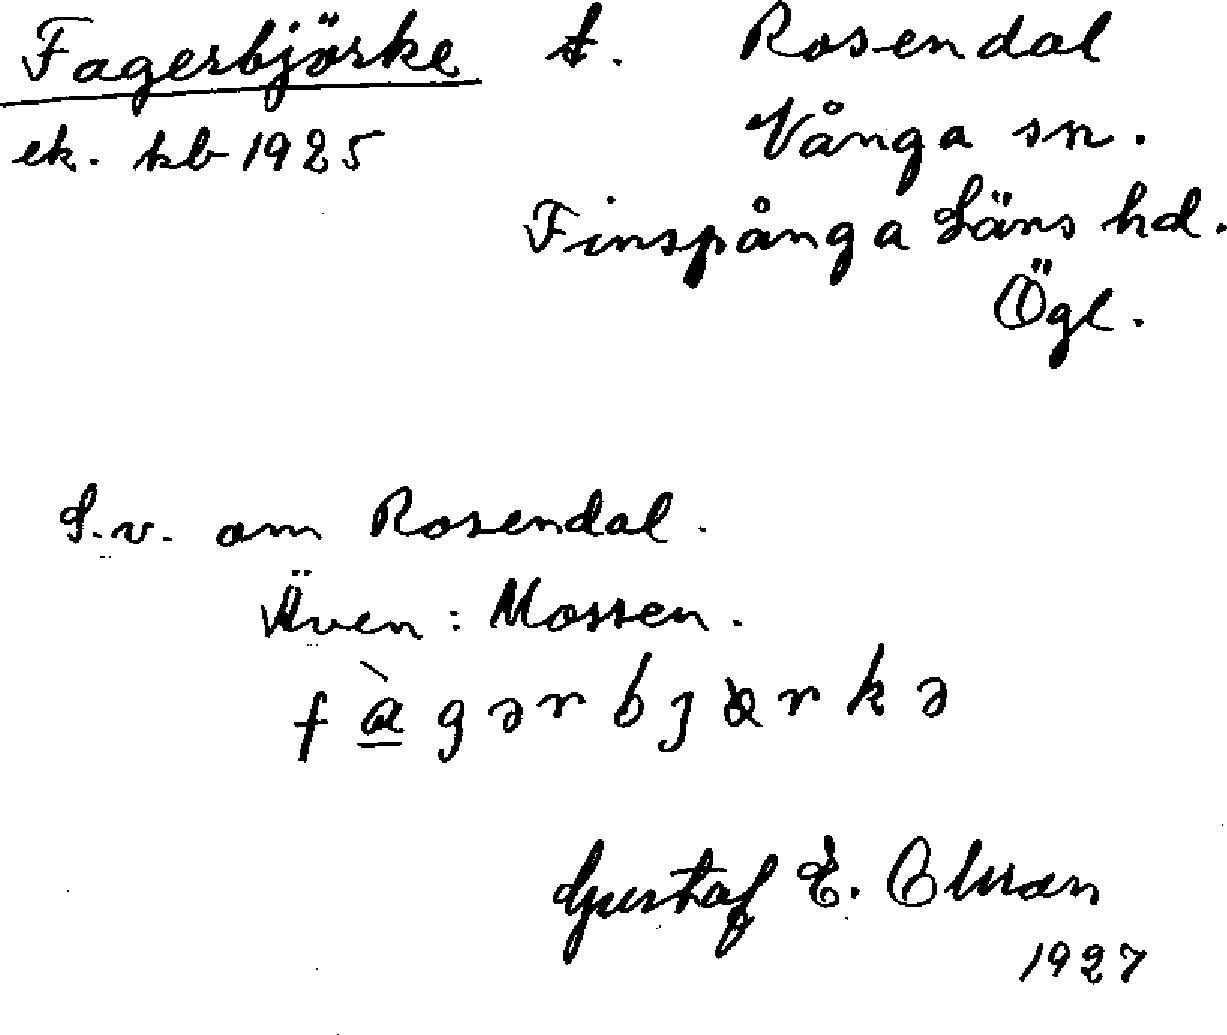 Fagerbjörke t. Rosendal
ek. kb 1925 Vånga sn.
Finspånga Läns hd.
Ögl.
S.v. om Rosendal.
Även: Mossen.
fàgərbjörkə
Gustaf E.
1927